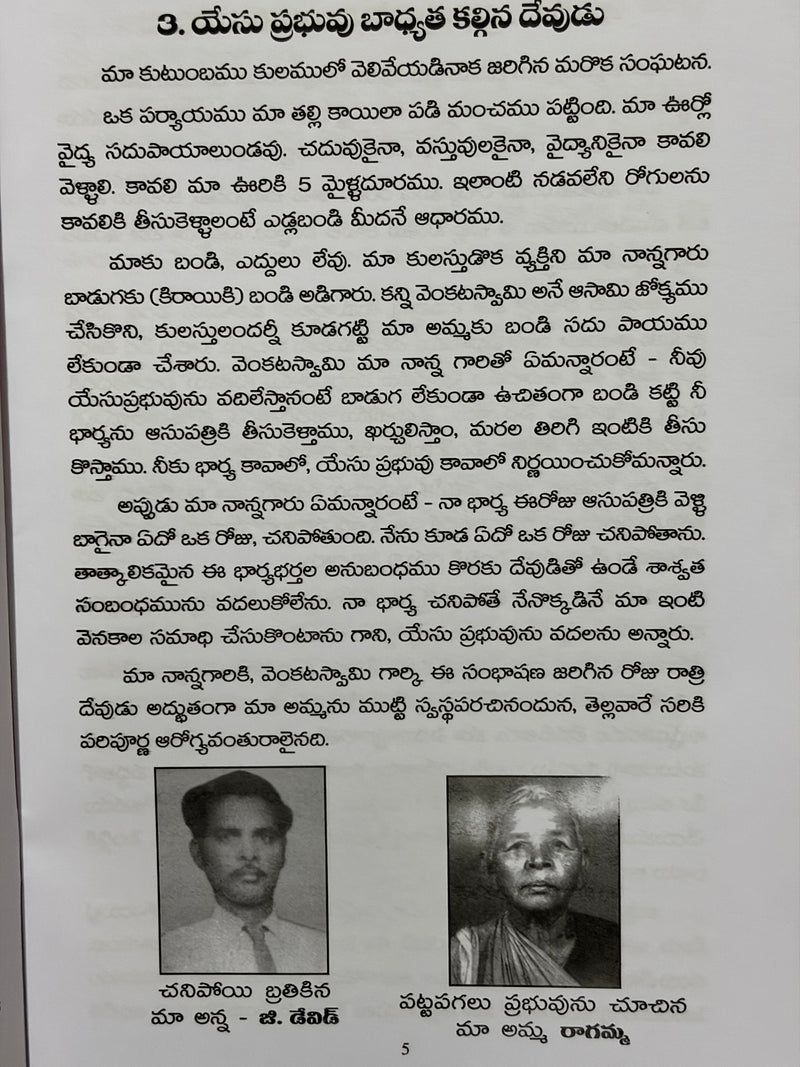 3. యేసు ప్రభువు బాధ్యత కల్గిన దేవుడు
మా కుటుంబము కులములో వెలివేయడినాక జరిగిన మరొక సంఘటన.
ఒక పర్యాయము మా తల్లి కాయిలా పడి మంచము పట్టింది. మా ఊర్లో
వైద్య సదుపాయాలుండవు. చదువుకైనా, వస్తువులకైనా, వైద్యానికైనా కావలి
వెళ్ళాలి. కావలి మా ఊరికి 5 మైళ్ళదూరము. ఇలాంటి నడవలేని రోగులను
కావలికి తీసుకెళ్ళాలంటే ఎడ్లబండి మీదనే ఆధారము.
మాకు బండి, ఎద్దులు లేవు. మా కులస్తుడొక వ్యక్తిని మా నాన్నగారు
బాడుగకు (కిరాయికి) బండి అడిగారు. కన్ని వెంకటస్వామి అనే ఆసామి జోక్యము
చేసికొని, కులస్తులందర్నీ కూడగట్టి మా అమ్మకు బండి సదు పాయము
లేకుండా చేశారు. వెంకటస్వామి మా నాన్న గారితో ఏమన్నారంటే - నీవు
యేసుప్రభువును వదిలేస్తానంటే బాడుగ లేకుండా ఉచితంగా బండి కట్టి నీ
భార్యను ఆసుపత్రికి తీసుకెళ్తాము, ఖర్చులిస్తాం, మరల తిరిగి ఇంటికి తీసు
కొస్తాము. నీకు భార్య కావాలో, యేసు ప్రభువు కావాలో నిర్ణయించుకోమన్నారు.
అప్పుడు మా నాన్నగారు ఏమన్నారంటే - నా భార్య ఈరోజు ఆసుపత్రికి వెళ్ళి
బాగైనా ఏదో ఒక రోజు, చనిపోతుంది. నేను కూడ ఏదో ఒక రోజు చనిపోతాను.
తాత్కాలికమైన ఈ భార్యభర్తల అనుబంధము కొరకు దేవుడితో ఉండే శాశ్వత
సంబంధమును వదలుకోలేను. నా భార్య చనిపోతే నేనొక్కడినే మా ఇంటి
వెనకాల సమాధి చేసుకొంటాను గాని, యేసు ప్రభువును వదలను అన్నారు.
మా నాన్నగారికి, వెంకటస్వామి గార్కి ఈ సంభాషణ జరిగిన రోజు రాత్రి
దేవుడు అద్భుతంగా మా అమ్మను ముట్టి స్వస్థపరచినందున, తెల్లవారే సరికి
పరిపూర్ణ ఆరోగ్యవంతురాలైనది.
చనిపోయి బ్రతికిన
మా అన్న - జి. డేవిడ్
పట్టపగలు ప్రభువును చూచిన
మా అమ్మ రాగమ్మ
5